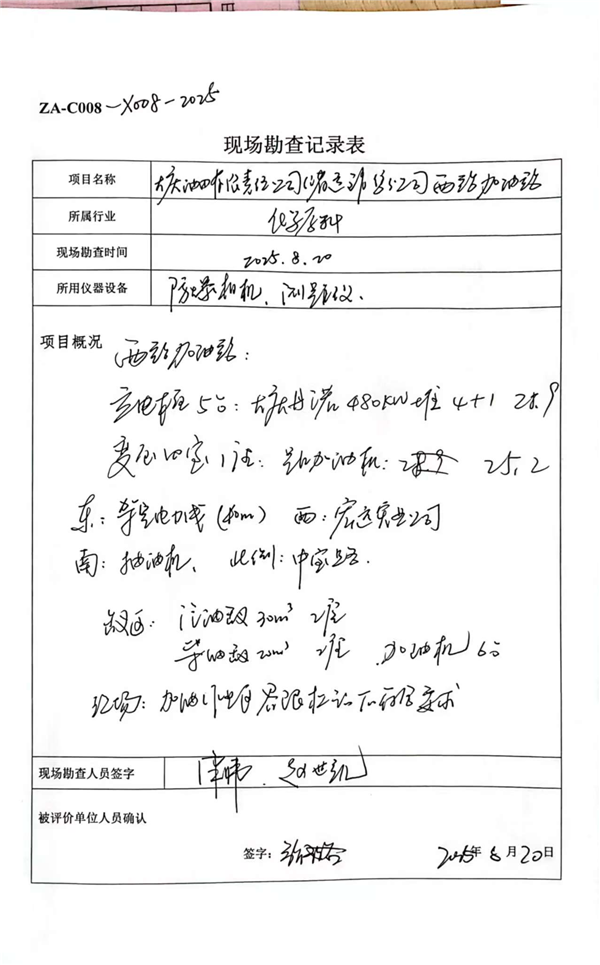 ZA-C008-X008-2025
现场勘查记录表
项目名称 大庆油田有限责任公司储运销售分公司西路加油站
所属行业 化学原料
现场勘查时间 2025.8.20
所用仪器设备 防爆相机、测距仪、
项目概况
西路加油站:
充电桩5台: 大庆丹诺 480KW 堆 4+1 28.9
变压器室1座: 距加油机: 25.2
东: 架空电力线(40m) 西: 宏达实业公司
南: 抽油机、北侧: 中宝路.
罐区: 汽油罐 30m³ 2座
柴油罐 20m³ 2座 加油机 6台
现场: 加油 限标识不符合要求
现场勘查人员签字
被评价单位人员确认
签字: 2025年8月20日